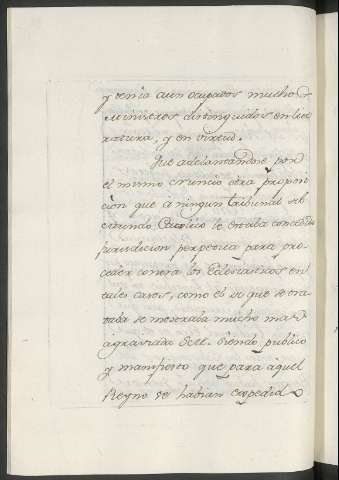 y tenia aun ocupados muchos
Ministros distinguidos en lite
ratura, y en virtud.
Fue adelantandose por
el mismo Nuncio otra proposi
cion que à ningun tribunal del
mundo Catolico le estaba concedida
jurisdicion perpetua para pro-
ceder contra los Eclesiasticos en
tales casos, como el de que se tra-
taba se mostraba mucho mas
agraviada siendo publico
y manifiesto que para aquel
Reyno se habian expedido